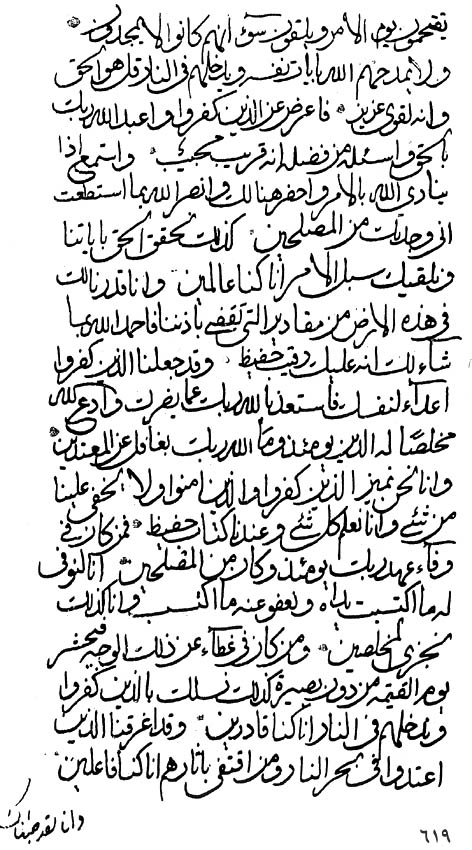 يقتحمون يوم الامر ويلقون سوء انهم كانوا لا يجدون
ولا يمدحهم الله بايات نفسه ويدخلهم فى النار قل هو الحق
وانه لقوى عزيز فاعرض عن الذين كفروا واعبد الله ربك
بالحق واسئله من فضله انه قريب مجيب واستمع اذا
ينادى الله بالامر واحضر هنالك وانصر الله بما استطعت
انى وجدتك من المصلحين كذلك نحقق الحق باياتنا
ونلقيك سبل الامر انا كنا عالمين وانا قدرنا لك
فى هذه الارض من مقادير التى نقضه باذننا فاحمد الله بما
شاء لك انه عليك رقيب حفيظ وقد جعلنا الذين كفروا
اعداء لنفسك فاستعذ بالله ربك عما يضرك وادع الله
مخلصا له الدين يومئذ وما الله ربك بغافل عن المعتدين
وانا نحن نميز الذين كفروا والذين امنوا ولا يخفى علينا
من شئ وانا نعلم كل شئ وعندنا كتاب حفيظ فمن كان فى
وفاء عهد ربك يومئذ وكان من المفلحين انا لنوفى
له ما اكتسبت يداه ونعفو عنه ما اكتسب وانا كذلك
نجزى المخلصين ومن كان فى غطاء عن ذلك الوجه فيحشر
يوم القيمة من دون بصيرة كذلك نسلك بالذين كفروا
وندخلهم فى النار انا كنا قادرين وقد اغرقنا الذين
اعتدوا فى بحر النار ومن اقتفى باثارهم انا كنا فاعلين
وانا لقد
٦١٩